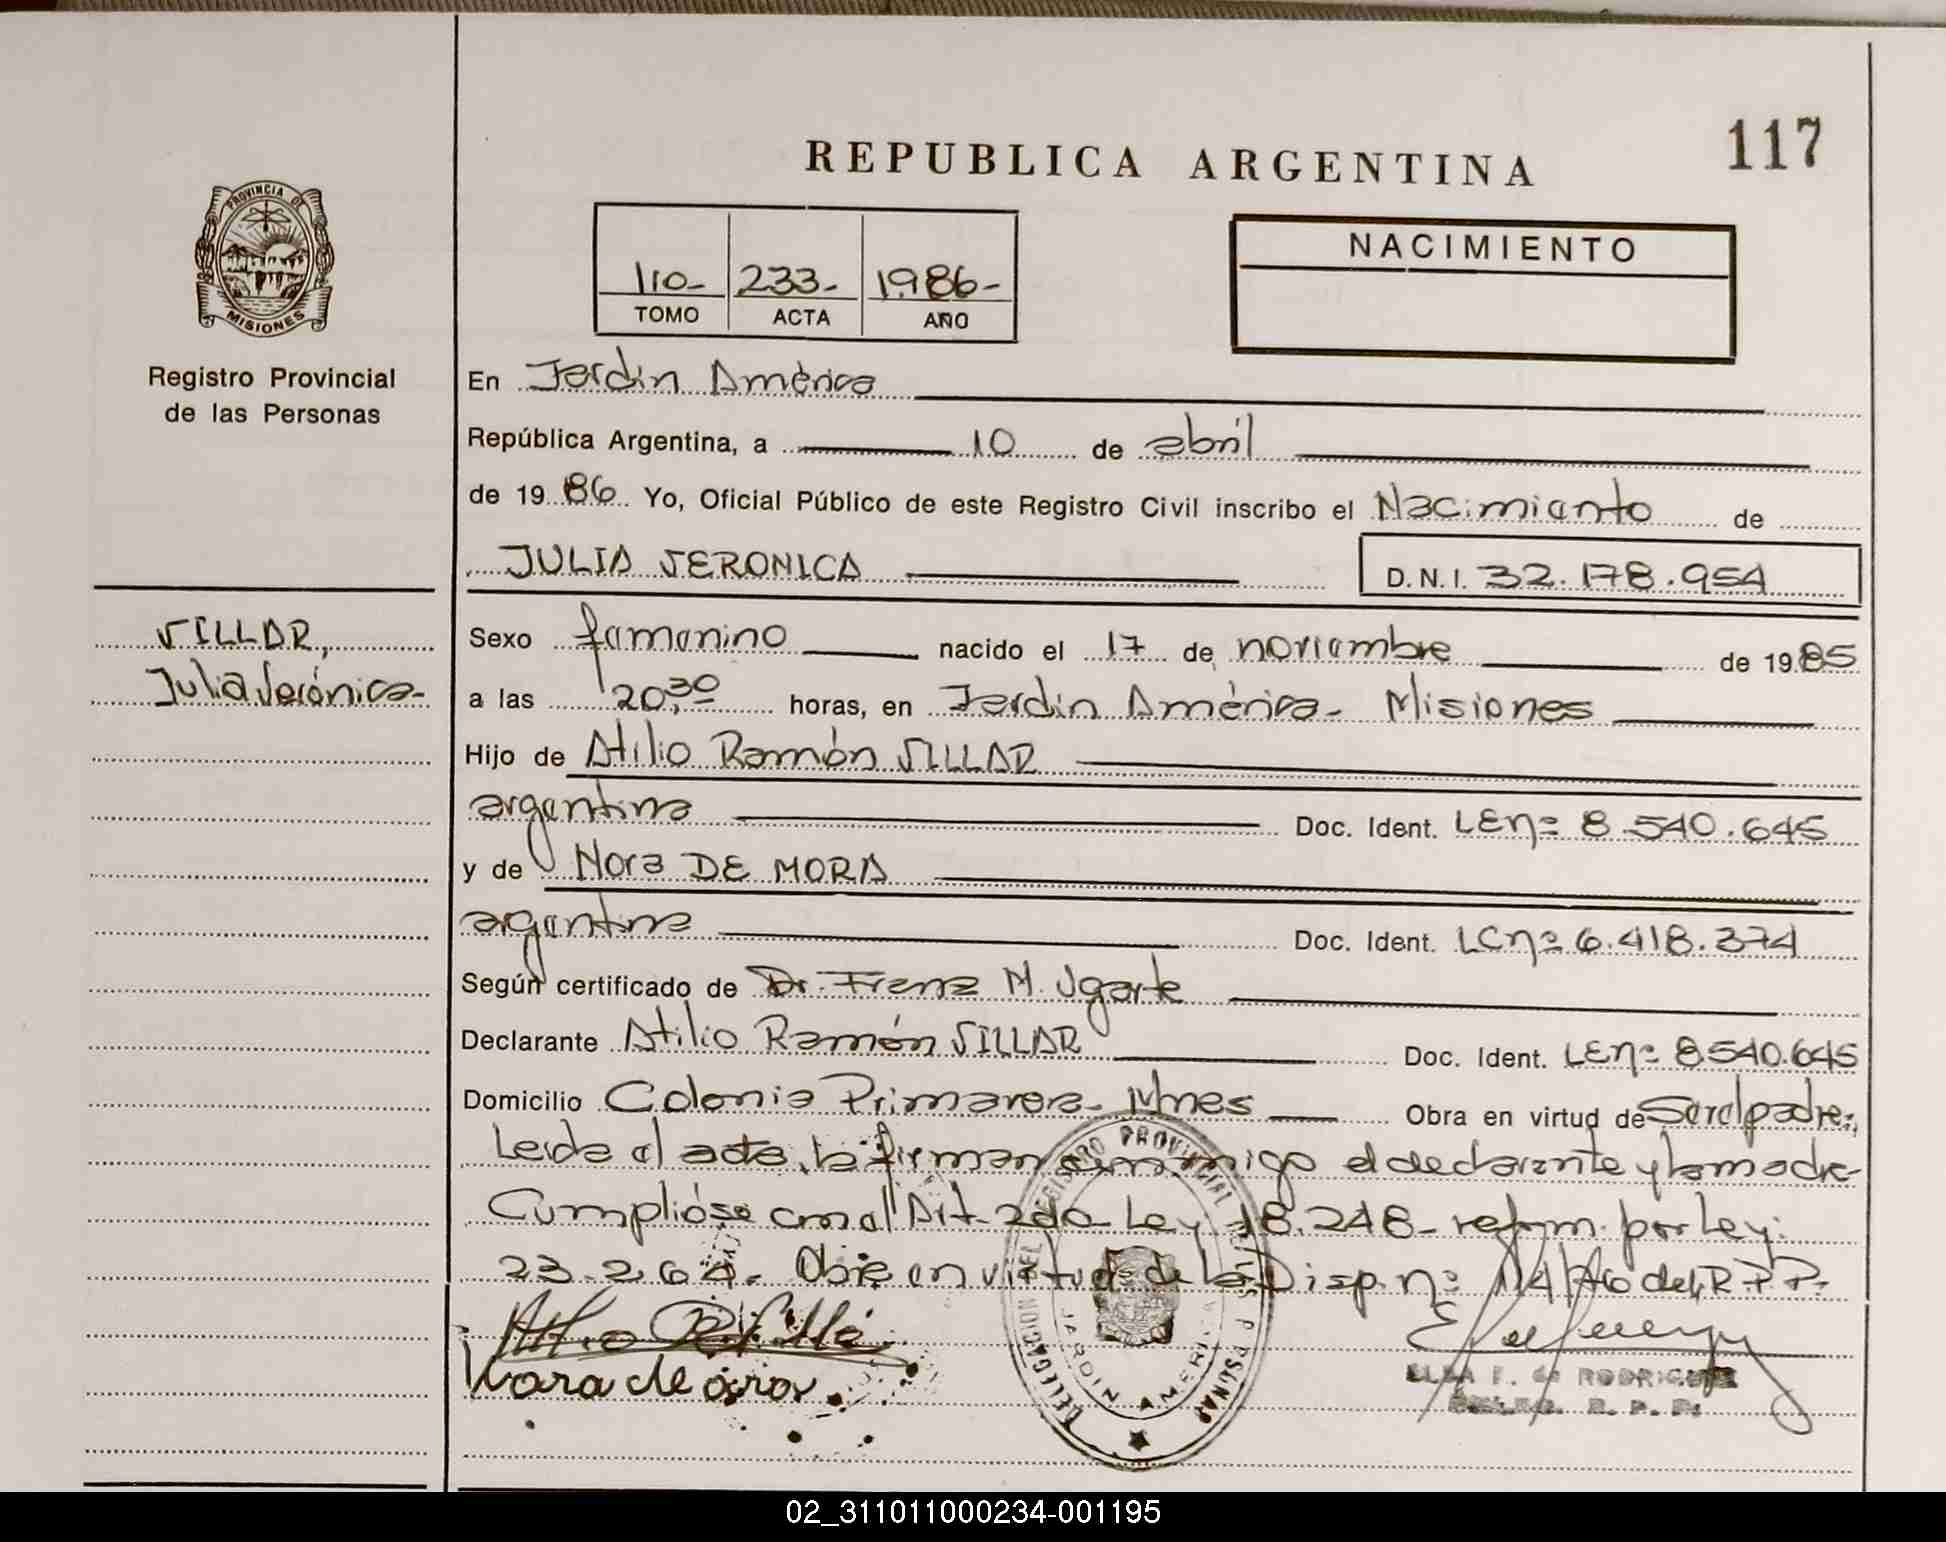 117
REPUBLICA ARGENTINA
PROVINCIA DE
MISIONES
Registro Provincial
de las Personas
110- 233- 1986-
TOMO ACTA AÑO
NACIMIENTO
En Jardín América
República Argentina, a 10 de abril
de 19 86 Yo, Oficial Público de este Registro Civil inscribo el Nacimiento de
JULIA VERONICA D.N.I. 32.178.954
VILLAR,
Julia Verónica-
Sexo femenino nacido el 17 de noviembre de 19 85
a las 20,30 horas, en Jardín América- Misiones
Hijo de Atilio Ramón VILLAR
argentina Doc. Ident. LEnº 8.540.645
y de Nora DE MORA
argentina Doc. Ident. LCnº 6.418.374
Según certificado de Dr. Franz M. Ugarte
Declarante Atilio Ramón VILLAR Doc. Ident. LEnº 8.540.645
Domicilio Colonia Primavera- Mnes Obra en virtud de Ser el padre.
Leida el acta, la firman conmigo el declarante y la madre
Cumplióse con el Art- 2do Ley 18.248- reform. por Ley.
23.264. Obra en virtud de la Disp. nº 14/80 del R.P.P.
ELSA F. de RODRIGUEZ
R. P. P.
DELEGACION DEL REGISTRO PROVINCIAL
JARDIN AMERICA
02_311011000234-001195